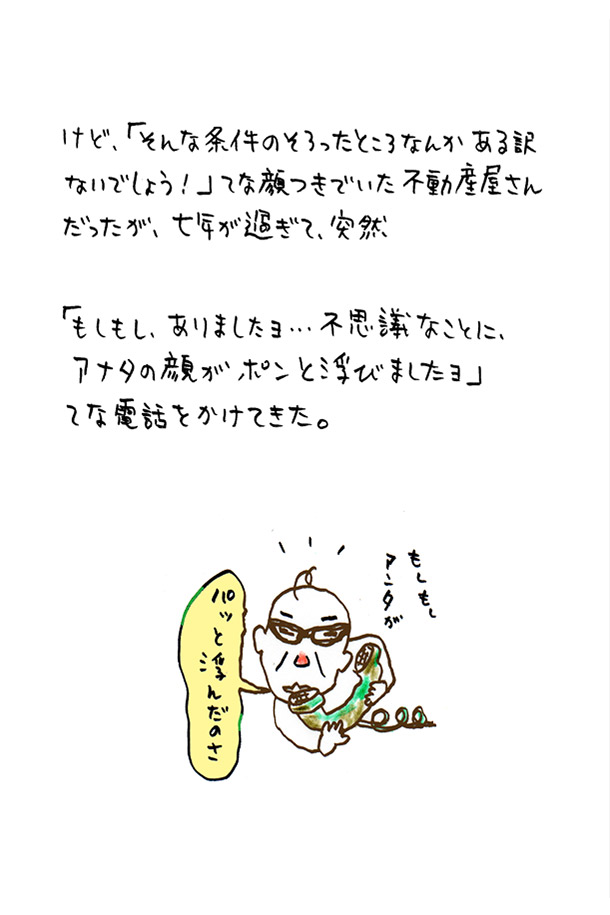 けど、「そんな条件のそろったところなんか ある訳
ないでしょう！」てな顔つきでいた 不動産屋さん
だったが、七年が過ぎて、突然、
「もしもし、ありましたヨ…不思議なことに、
アナタの顔が ポンと浮びましたヨ」
てな電話をかけてきた。
もしもし
アンタが
パッと浮んだのさ